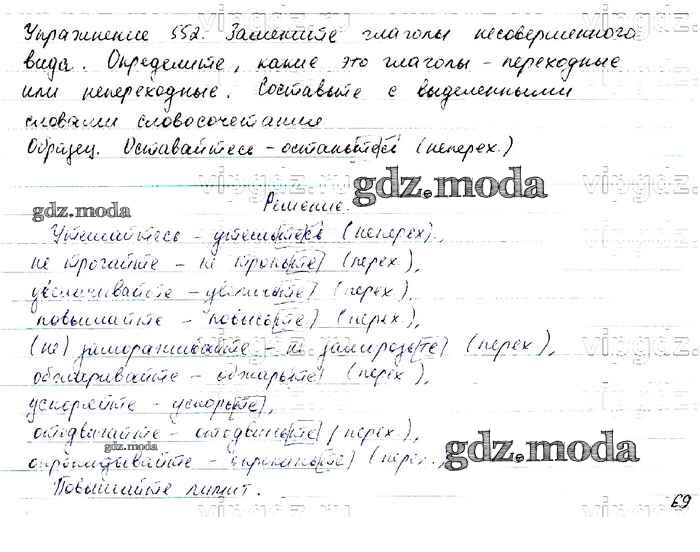 Упражнение 552. Замените глаголы несовершенного
вида. Определите, какие это глаголы - переходные
или непереходные. Составьте с выделенными
словами словосочетания
Образец. Оставайтесь - останьтесь (неперех.)
gdz.moda
gdz.moda
Решение.
Утешайтесь - утешьтесь (неперех).,
не трогайте - не троньте (перех.),
увеличивайте - увеличьте (перех.),
повышайте - повысьте (перех.),
(не) замораживайте - не заморозьте (перех.),
обжаривайте - обжарьте (перех.),
ускоряйте - ускорьте,
отодвигайте - отодвиньте (перех.),
gdz.moda
gdz.moda
опрокидывайте - опрокиньте (перех.,
Повышайте лимит.
69
vingdz.ru